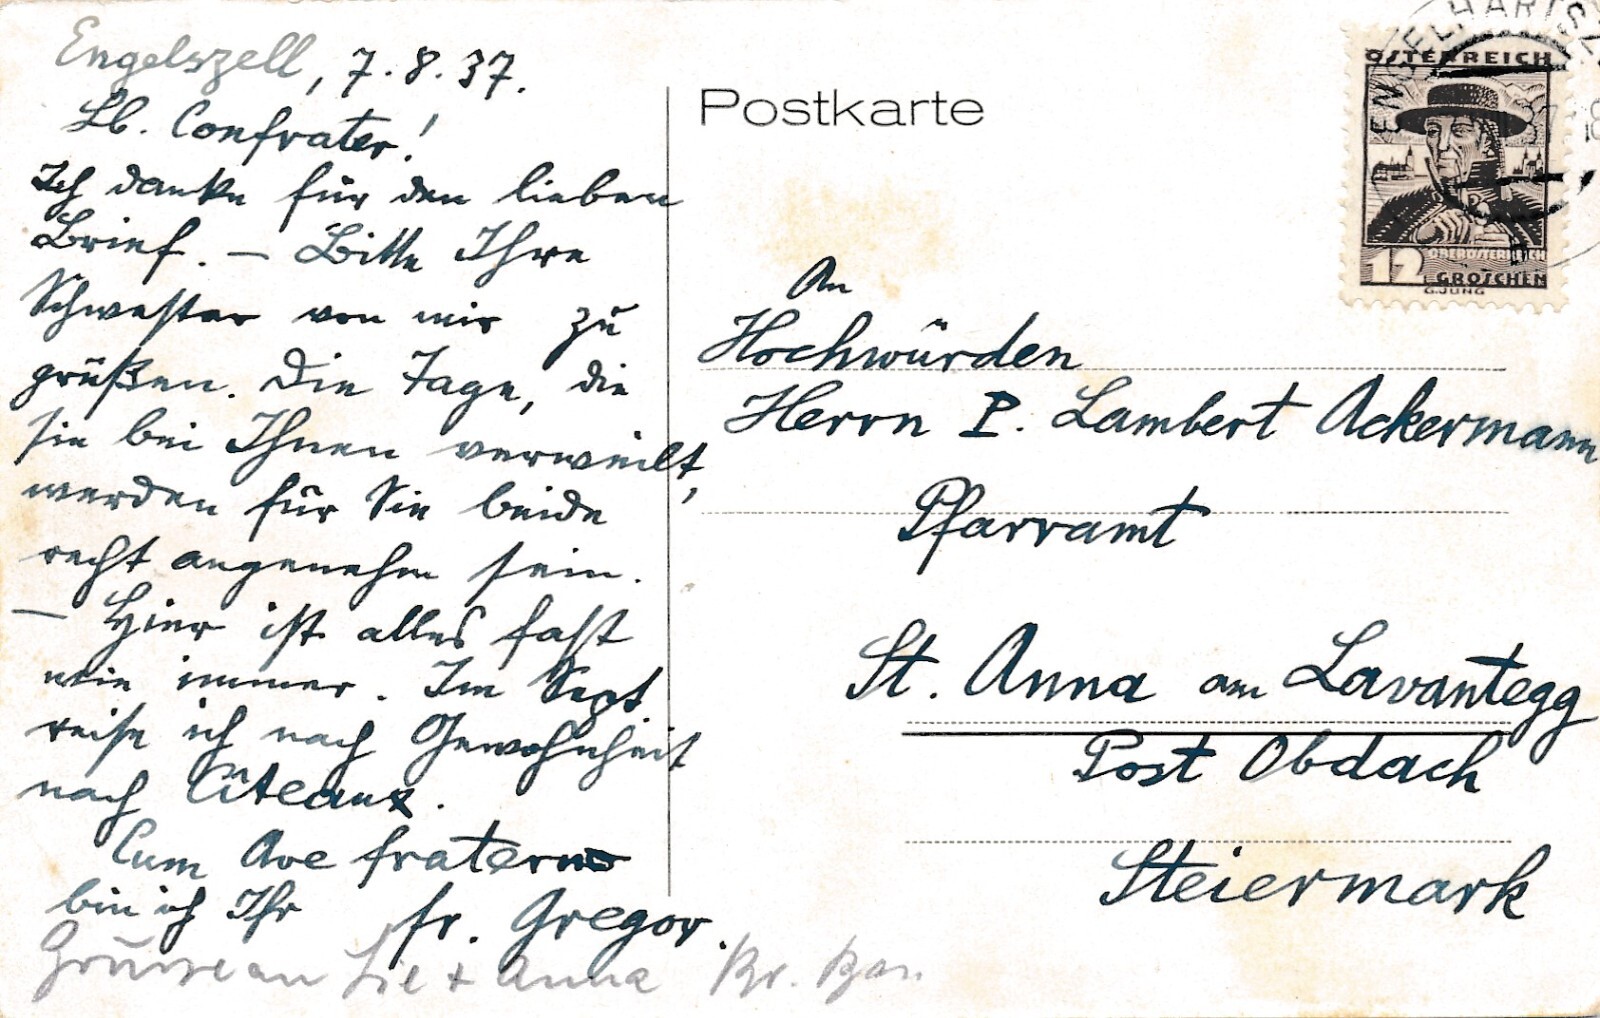 Engelszell, 7.8.37.
Lb. Confrater!
Ich danke für den lieben
Brief. – Bitte Ihre
Schwester von mir zu
grüßen. Die Tage, die
sie bei Ihnen verweilt,
werden für Sie beide
recht angenehm sein.
– Hier ist alles fast
wie immer. Im Sept.
reise ich nach Gewohnheit
nach Cîteaux.
Cum Ave fraterno
bin ich Ihr fr. Gregor.
Grüsse an Sie + Anna Br.
Postkarte
ENGELHARTSZ
ÖSTERREICH
OBERÖSTERREICH
12 GROSCHEN
G.JUNG
An
Hochwürden
Herrn P. Lambert Ackermann
Pfarramt
St. Anna am Lavantegg
Post Obdach
Steiermark